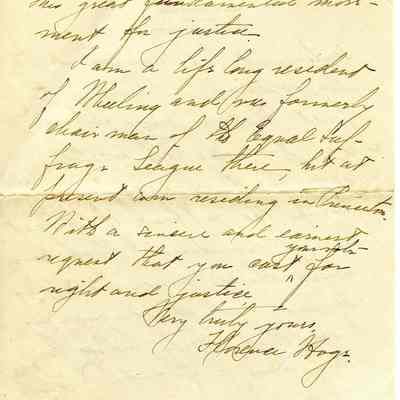 this great fundamental move-
ment for justice
I am a life long resident
of Wheeling and was formerly
chairman of the Equal Suf-
frage League there, but at
present am residing in Princeton.
With a sincere and earnest
request that you cast your vote for
right and justice,
Very truly yours,
Florence Hoge.